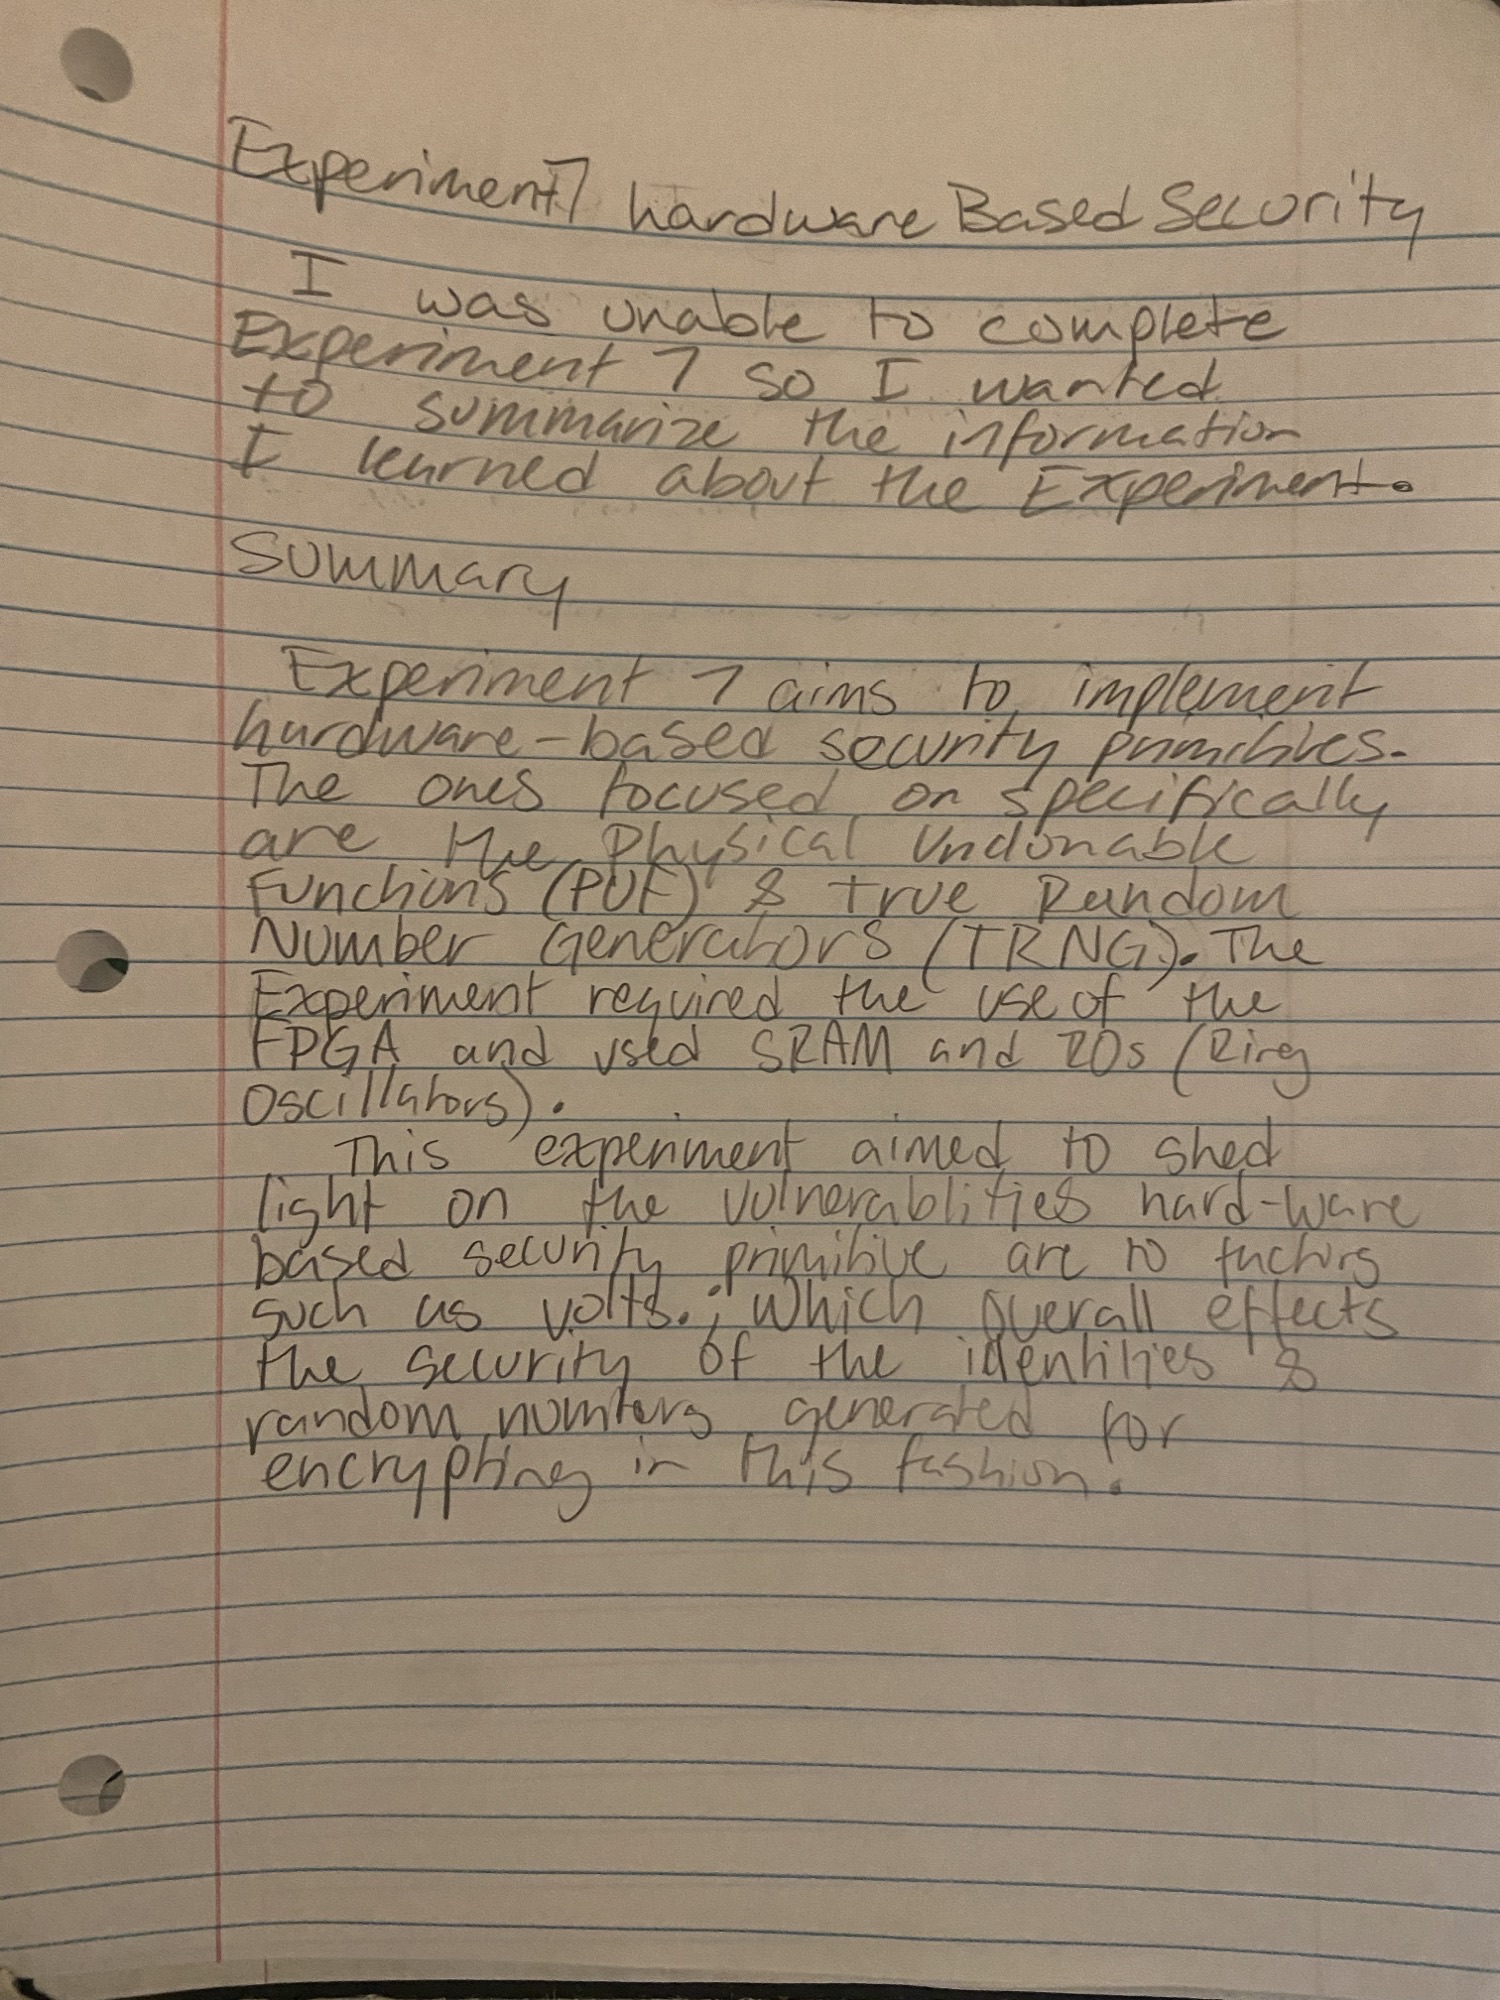 Experiment 7 hardware Based Security
I was unable to complete
Experiment 7 so I wanted
to summarize the information
I learned about the Experiment.
Summary
Experiment 7 aims to implement
hardware-based security primitives.
The ones focused on specifically
are the Physical Unclonable
Functions (PUF) & True Random
Number Generators (TRNG). The
Experiment required the use of the
FPGA and used SRAM and ROs (Ring
Oscillators).
This experiment aimed to shed
light on the vulnerablities hard-ware
based security primitive are to factors
such as volts.; which overall effects
the security of the identities &
random numbers generated for
encrypting in this fashion.